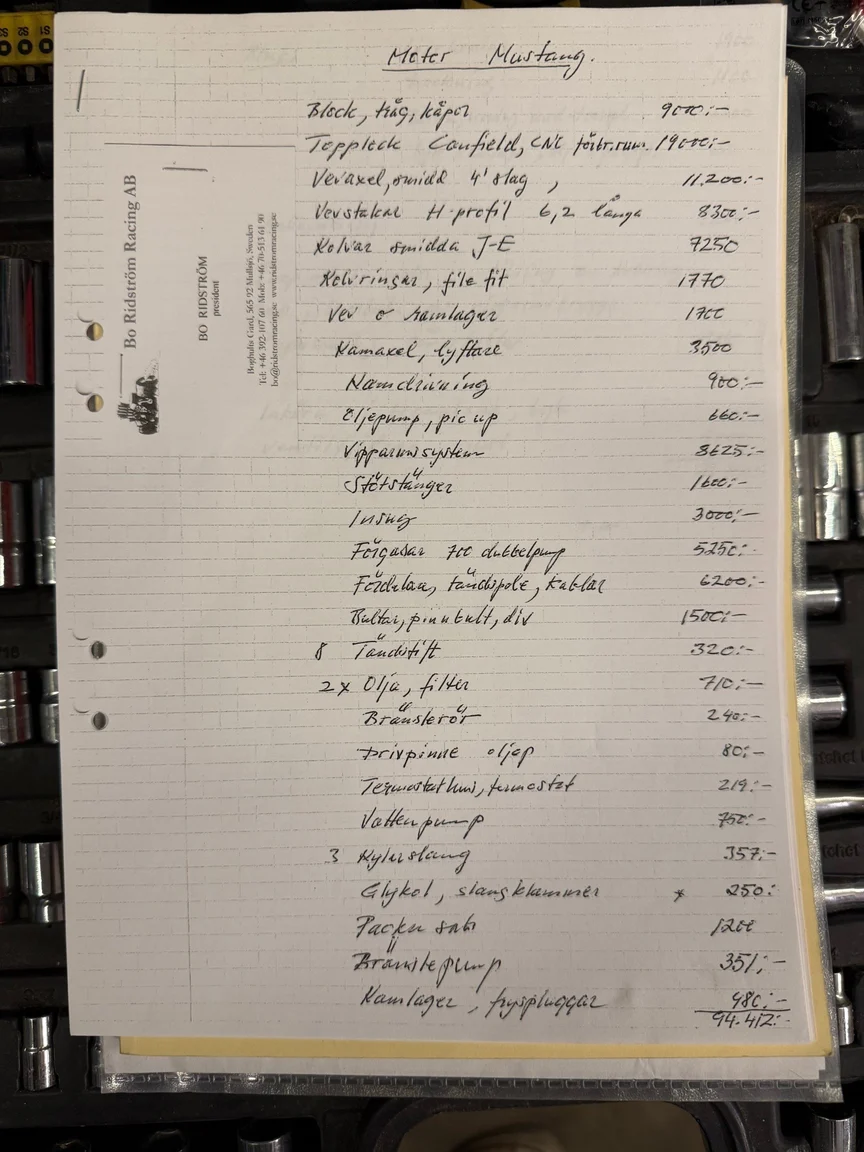 Motor Mustang.
Block, tråg, kåpor 9000:-
Toppleck Canfield, CNC förbr.rum. 19000:-
Vevaxel, smidd 4" slag, 11.200:-
Vevstakar H-profil 6,2 långa 8300:-
Kolvar smidda J-E 7250
Kolvringar, file fit 1770
Vev o ramlager 1700
Kamaxel, lyftare 3500
Kamdrivning 900:-
Oljepump, pic up 660:-
Vipparmsystem 8625:-
Stötstänger 1600:-
Insug 3000:-
Förgasar 700 dubbelpump 5250:-
Fördelare, tändspole, kablar 6200:-
Bultar, pinnbult, div 1500:-
8 Tändstift 320:-
2x Olja, filter 710:-
Bränslerör 240:-
Drivpinne oljep 80:-
Termostathus, termostat 219:-
Vattenpump 750:-
3 Kylerslang 357:-
Glykol, slangklammer * 250:-
Packn sats 1200
Bränslepump 351:-
Kamlager, fryspluggar 480:-
94.412:-
Bo Ridström Racing AB
BO RIDSTRÖM
president
Boghults Gård, 565 92 Mullsjö, Sweden
Tel: +46 392-107 60 Mob: +46 70-513 61 90
bo@ridstromracing.se www.ridstromracing.se